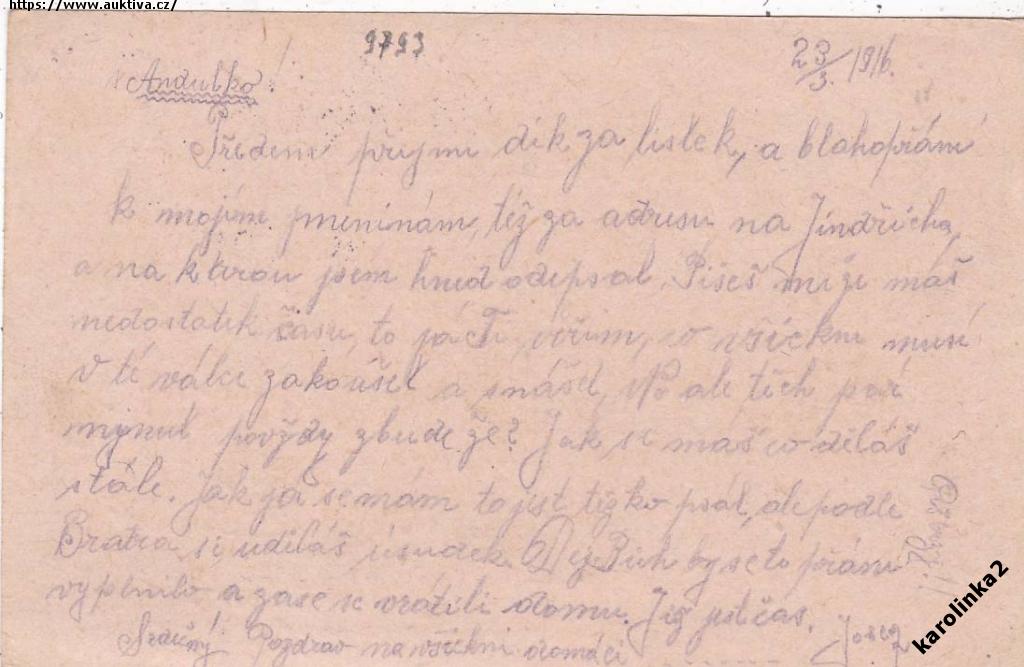 https://www.auktiva.cz/
9793
23/3. 1916.
Andulko!
Předem přijmi dík za lístek, a blahopřání
k mojím jmeninám, též za adresu na Jindřicha,
a na kterou jsem hned odepsal. Píšeš mi že máš
nedostatek času, to já Ti věřim, co všickni musí
v té válce zakoušet a snášet, No ale těch pár
minut povždy zbude že? Jak se maš co děláš
stále. Jak já se mám to jest těžko psát, ale podle
Bratra si uděláš úsudek. Dejž Bůh by se to přání
vyplnilo a zase se vrátili domu. Již jest čas.
Srdečný Pozdrav na všickni domácí
Josef
karolinka2